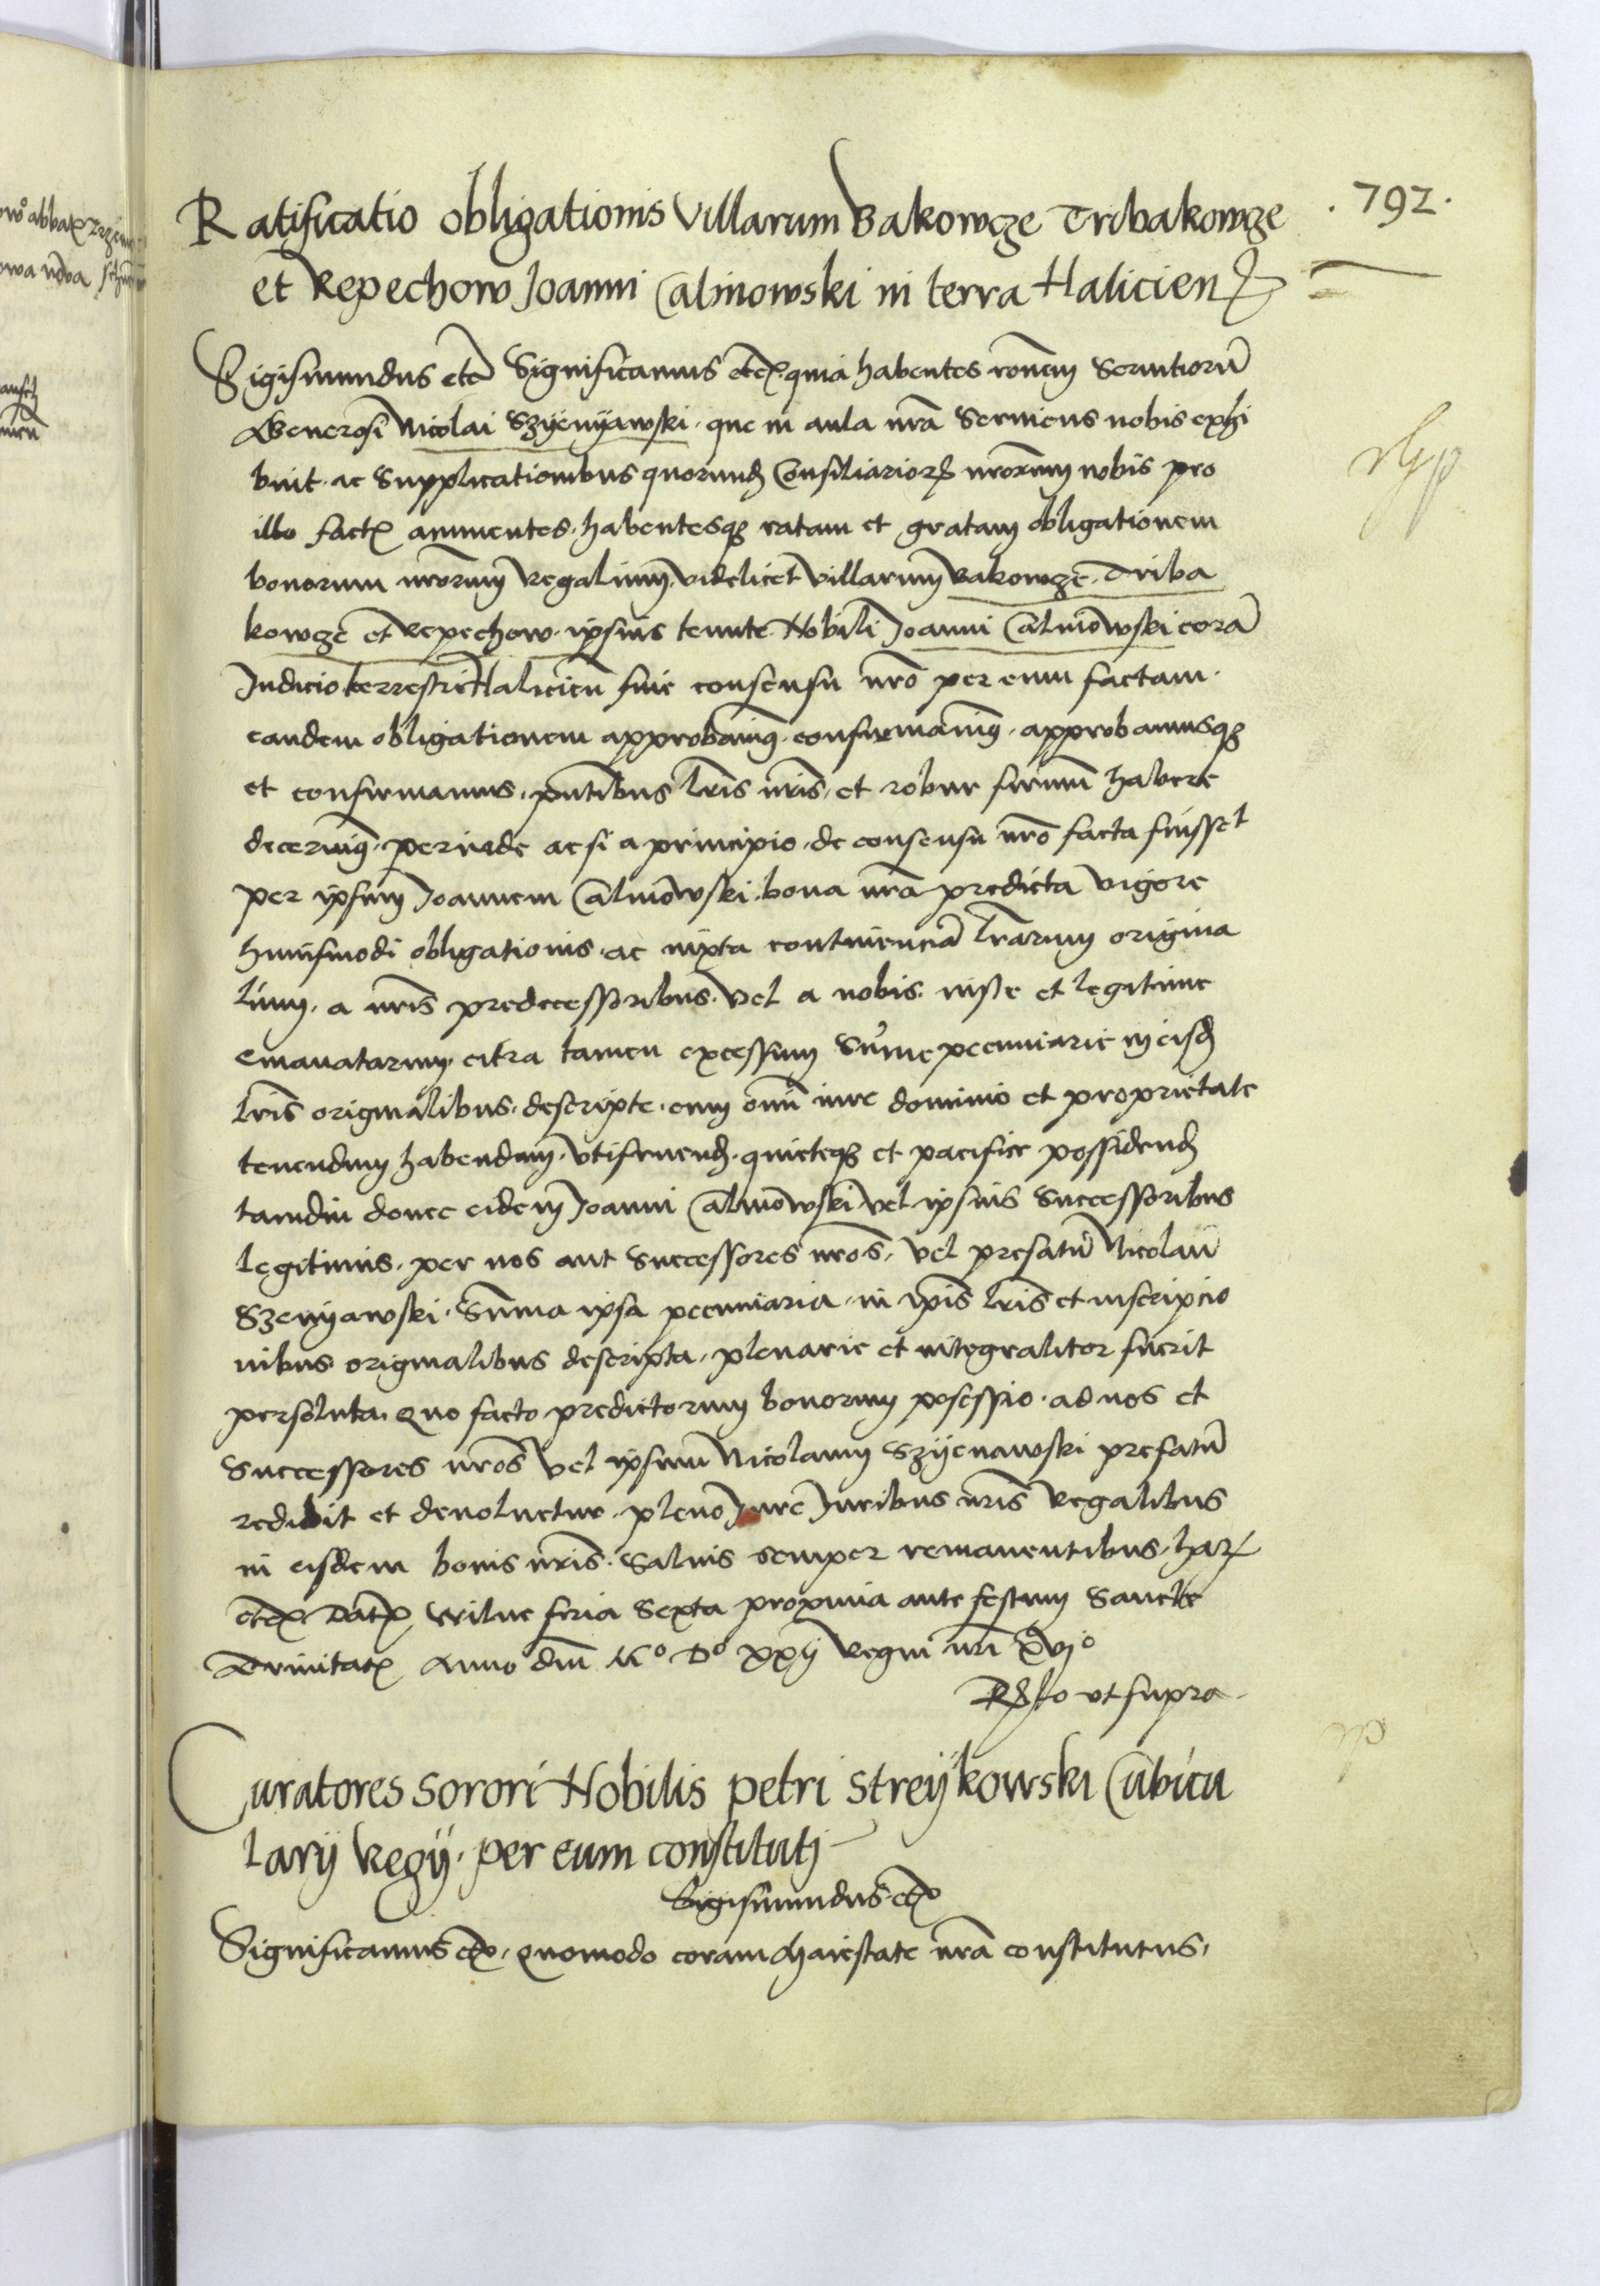 . 792 .
Ratificatio obligationis villarum Bakowcze Tribakowcze
et Repechow Joanni Calinowski in terra Halicien
Sigismundus etc Significamus etc. quia habentes ronem Serviciorũ
Generosi Nicolai Szÿenÿawski. que in aula nrã Serviens nobis exhi
buit. ac Supplicationibus quorund Consiliarior nrorum nobis pro
illo fact annuentes. habentesq ratam et gratam obligationem
bonorum nrorum Regalium, videlicet villarum Bakowcze. Triba
kowcze et Repechow. ipsius tenute. Nobili Joanni Calinowski corã
Judicio terrestri Halicien sine consensu nrõ per eum factam.
eandem obligationem approbãmq. confirmãmq. approbamusq
et confirmamus. pntibus lris nris, et robur firmum habere
decernimq. perinde acsi a principio. de consensu nrõ facta fuisset
per ipsum Joannem Calinowski. bona nrã predicta vigore
huiusmodi obligationis. ac iuxta continenciã lrarum origina
lium. a nris predecessoribus. vel a nobis. iuste et legitime
emanatarum, citra tamen excessum Sume pecuniarie in eisd
lris originalibus. descripte. cum omi iure dominio et proprietate
tenendum habendum. utifruend. quieteq et pacifice possidend
tamdiu donec eidem Joanni Calinowski vel ipsius Successoribus
legitimis. per nos aut Successores nros. vel prefatũ Nicolaũ
Szenÿawski. Sũma ipsa pecuniaria. in ipsis lris et inscripcio
nibus originalibus descripta, plenarie et integraliter fuerit
persoluta. Quo facto predictorum bonorum posessio. ad nos et
Successores nros vel ipsum Nicolaum Szÿenawski prefatũ
redibit et devoluetur. pleno Jure Juribus nris Regalibus
in eisdem bonis nris. Salvis semper remanentibus. har
etc. Dat Wilne feria Sexta proxima ante festum Sancte
Trinitat Anno dni Mº Dº xxij Regni nri xvjº
Rlo ut supra
Curatores sorori Nobilis Petri Streÿkowski Cubicu
larÿ Regÿ. per eum constituti
Sigismundus etc
Significamus etc. Quomodo coram Maiestate nrã constitutus,